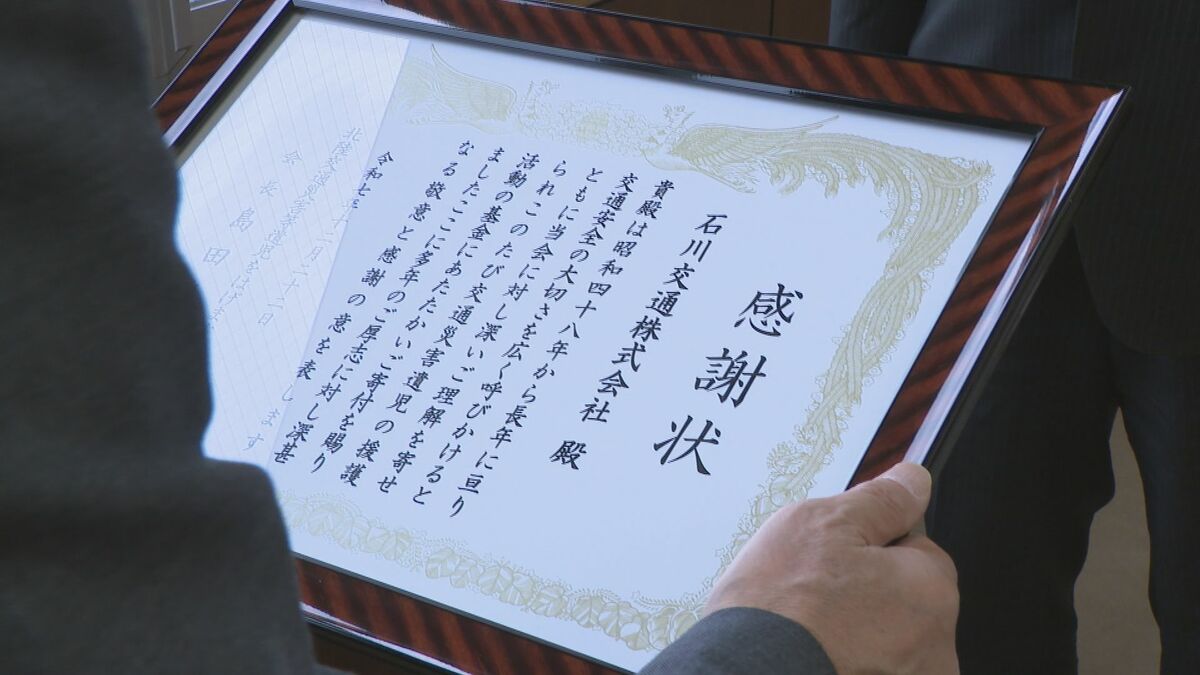 感謝状
石川交通株式会社 殿
貴殿は昭和四十八年から長年に亘り
交通安全の大切さを広く呼びかけると
ともに当会に対し深いご理解を寄せ
られこのたび交通災害遺児の援護
活動の基金にあたたかいご寄付を賜り
ましたここに多年のご厚志に対し深甚
なる敬意と感謝の意を表します
令和七年十二月二十二日
北陸交通災害遺児をはげます
会長 島田